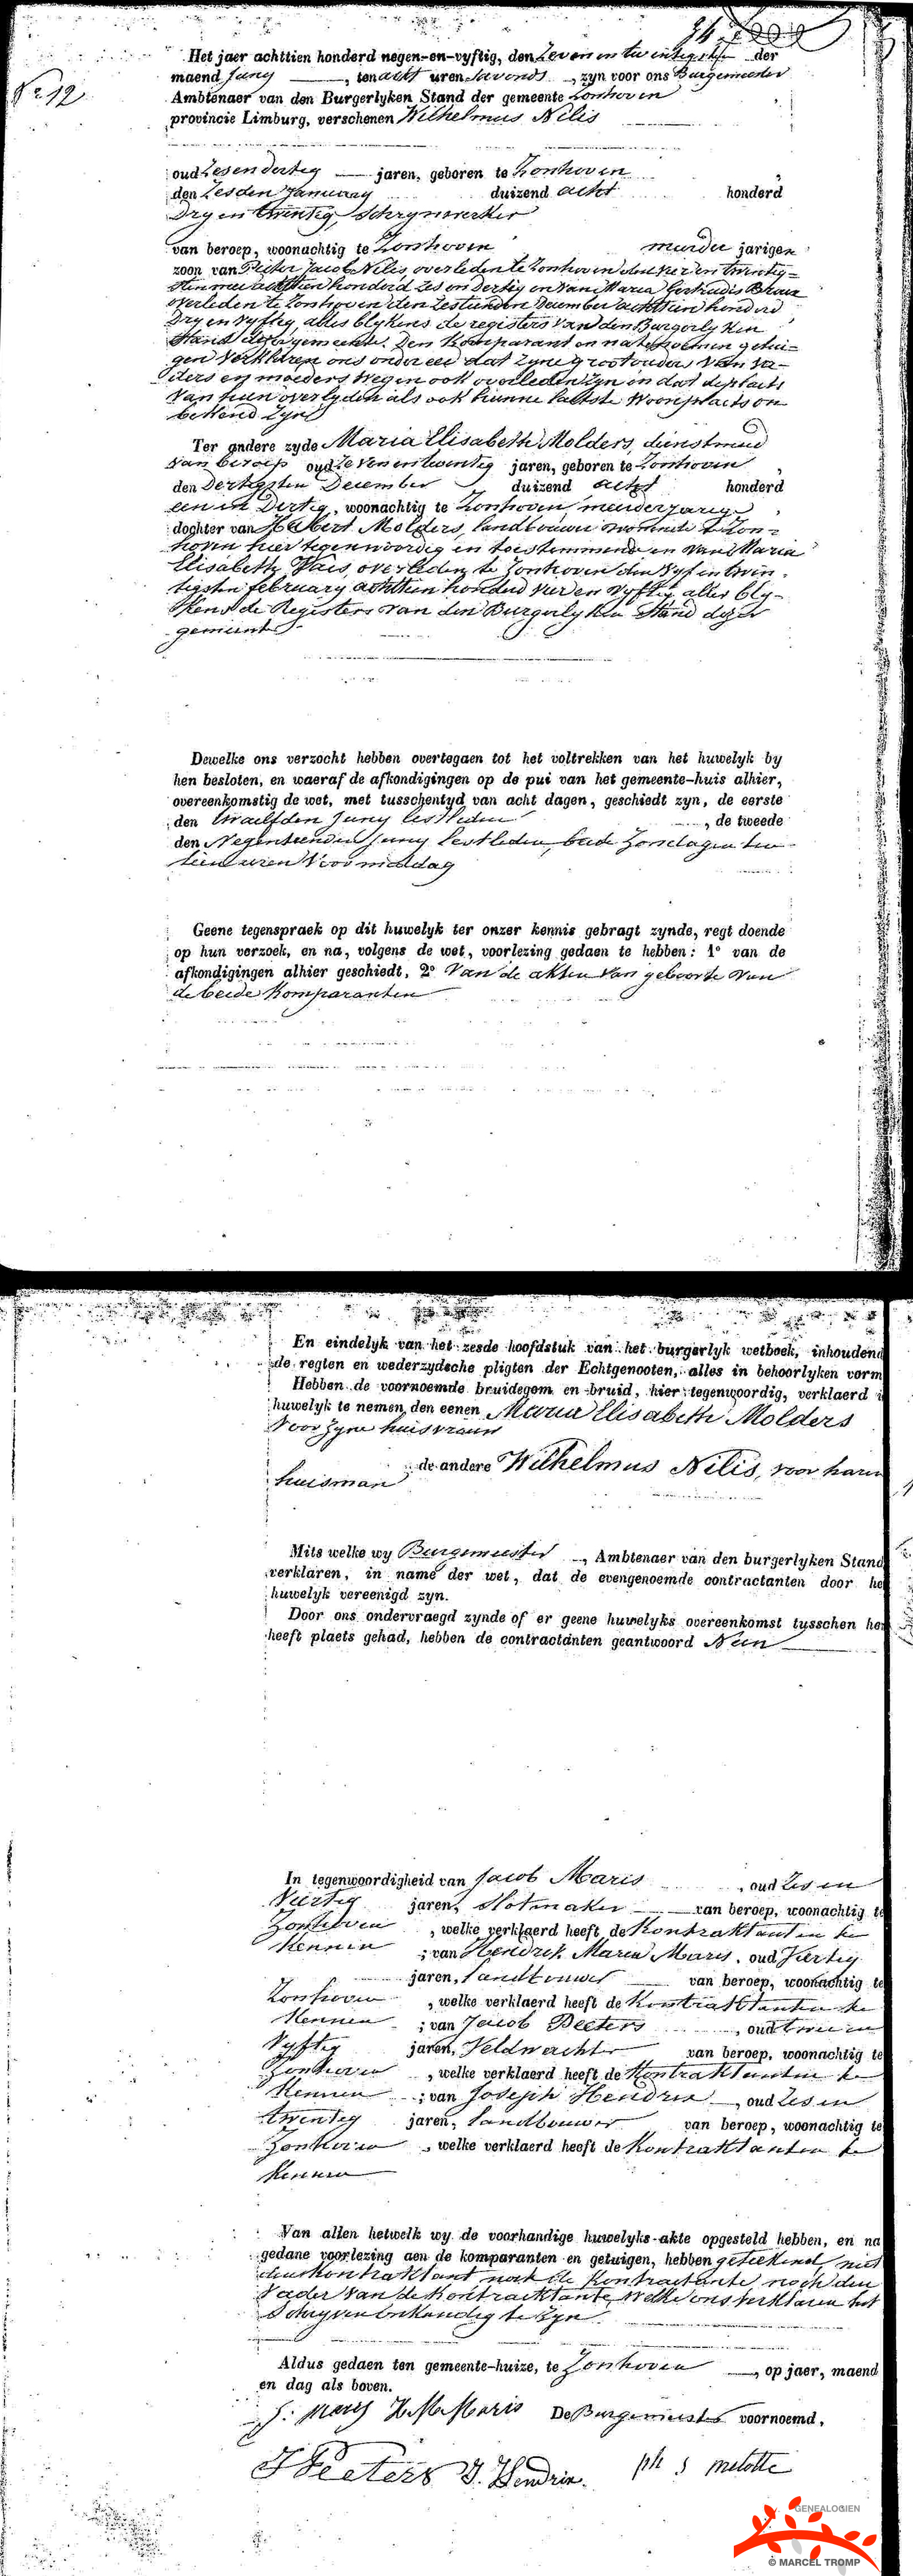 Nº 12
Het jaer achttien honderd negen-en-vyftig, den Zeven en twintigsten der
maend Juny, ten acht uren Savonds, zyn voor ons Burgemeester
Ambtenaer van den Burgerlyken Stand der gemeente Zonhoven
provincie Limburg, verschenen Wilhelmus Nelis
oud Zes en dertig jaren, geboren te Zonhoven
den Zesden January duizend acht honderd
Dry en twintig, Schrynwerker
van beroep, woonachtig te Zonhoven meerder jarigen
zoon van Peeter Jacob Nelis, overleden te Zonhoven den vier en twintig-
sten mei achttien honderd zes en dertig en van Maria Gertrudis
overleden te Zonhoven den zestienden December achttien honderd
Dry en vyftig, alles blykens de registers van den Burgerlyken
Stand dezer gemeente. Den komparant en natenoemen getui-
gen verklaren ons onder eed dat zyne grootouders van va-
ders en moeders wegen ook overleden zyn en dat de plaets
van hun overlyden als ook hunne laetste woonplaets on
bekend zyn
Ter andere zyde Maria Elisabeth Molders, dienstmeid
van beroep oud Zeven en twintig jaren, geboren te Zonhoven
den Dertigsten December duizend acht honderd
een en Dertig, woonachtig te Zonhoven, meerderjarige
dochter van Hubert Molders, landbouwer woonende te Zon-
hoven hier tegenwoordig en toestemmend en van Maria
Elisabeth Vaes, overleden te Zonhoven den Vyf en twin-
tigsten february achttien honderd vier en vyftig, alles bly-
kens de Registers van den Burgerlyken Stand dezer
gemeente
Dewelke ons verzocht hebben overtegaen tot het voltrekken van het huwelyk by
hen besloten, en waeraf de afkondigingen op de pui van het gemeente-huis alhier,
overeenkomstig de wet, met tusschentyd van acht dagen, geschiedt zyn, de eerste
den twaelfden Juny lestleden, de tweede
den Negentienden Juny lestleden, beide Zondagen ten
tien uren Voormiddag
Geene tegenspraek op dit huwelyk ter onzer kennis gebragt zynde, regt doende
op hun verzoek, en na, volgens de wet, voorlezing gedaen te hebben: 1º van de
afkondigingen alhier geschiedt, 2º Van de akten van geboorte van
de beide komparanten
En eindelyk van het zesde hoofdstuk van het burgerlyk wetboek, inhoudend
de regten en wederzydsche pligten der Echtgenooten, alles in behoorlyken vorm
Hebben de voornoemde bruidegom en bruid, hier tegenwoordig, verklaerd
huwelyk te nemen, den eenen Maria Elisabeth Molders
Voor zyne huisvrouw
de andere Wilhelmus Nelis, voor haren
huisman
Mits welke wy Burgemeester, Ambtenaer van den burgerlyken Stand
verklaren, in name der wet, dat de evengenoemde contractanten door he
huwelyk vereenigd zyn.
Door ons ondervraegd zynde of er geene huwelyks overeenkomst tusschen he
heeft plaets gehad, hebben de contractanten geantwoord Neen
In tegenwoordigheid van Jacob Maris, oud Zes en
Veertig jaren, Slotmaker van beroep, woonachtig te
Zonhoven, welke verklaerd heeft de Kontraktanten te
Kennen; van Hendrik Maria Maris, oud Veertig
jaren, Landbouwer van beroep, woonachtig te
Zonhoven, welke verklaerd heeft de Kontraktanten te
Kennen; van Jacob Peeters, oud twee en
Vyftig jaren, Veldwachter van beroep, woonachtig te
Zonhoven, welke verklaerd heeft de Kontraktanten te
Kennen; van Joseph Hendrix, oud Zes en
twintig jaren, Landbouwer van beroep, woonachtig te
Zonhoven, welke verklaerd heeft de Kontraktanten te
Kennen
Van allen hetwelk wy de voorhandige huwelyks-akte opgesteld hebben, en na
gedane voorlezing aen de komparanten en getuigen, hebben geteekend niet
den kontraktant nock de kontractante noch den
Vader van de kontracktante welke ons verklaren het
Schryven onkundig te zyn.
Aldus gedaen ten gemeente-huize, te Zonhoven, op jaer, maend
en dag als boven.
J. Maris H. M. Maris De Burgemeester voornoemd,
J Peeters J. Hendrix. ph J melotte
GENEALOGIEN
© MARCEL TROMP